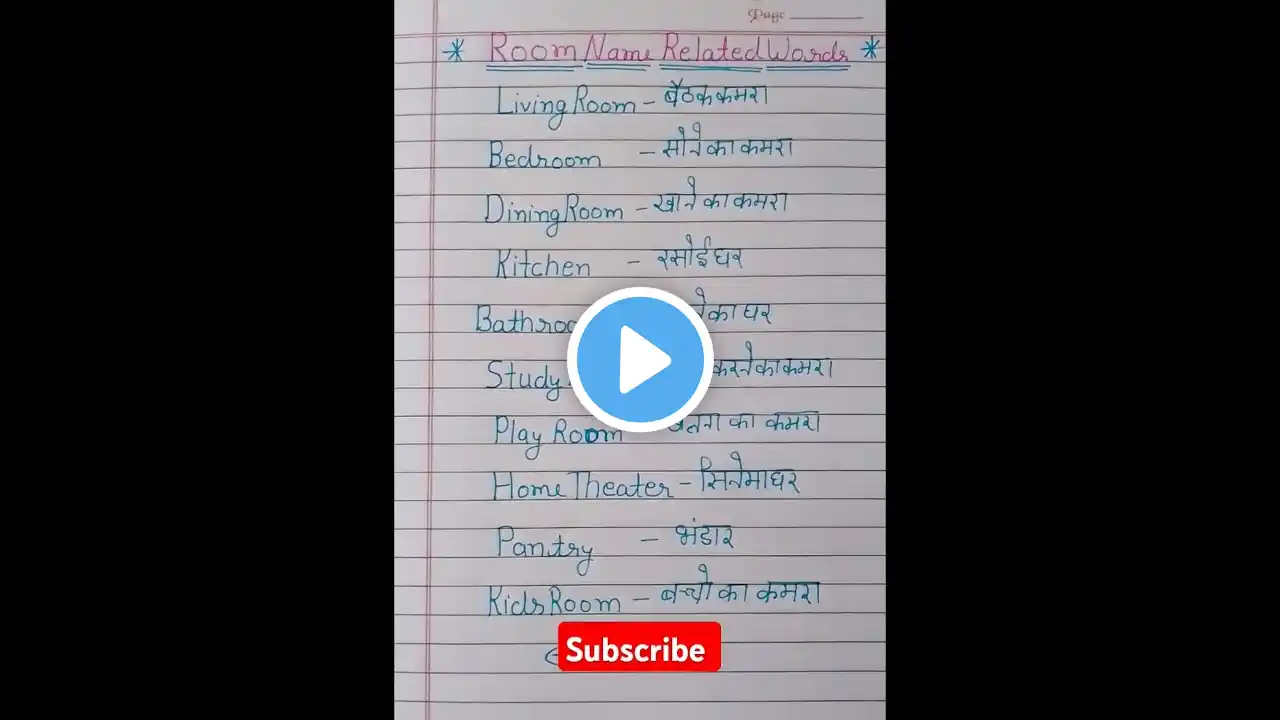 Page
* Room Name Related Words *
Living Room - बैठक कमरा
Bedroom - सोने का कमरा
Dining Room - खाने का कमरा
Kitchen - रसोईघर
का घर
Study करने का कमरा
Play Room का कमरा
Home Theater - सिनेमाघर
Pantry - भंडार
Kids Room - बच्चो का कमरा
Subscribe